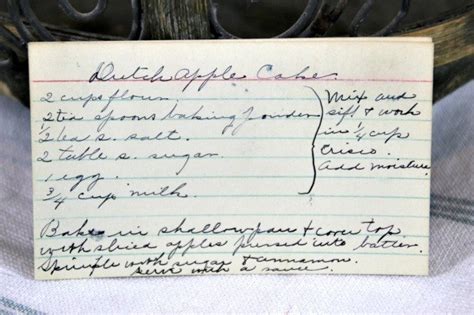 Dutch Apple Cake
2 cups flour
2 tea spoons baking powder
1/2 tea s. salt.
2 table s. sugar
1 egg.
3/4 cup milk.
Mix and
sift & work
in 1/4 cup
Crisco.
Add moisture
Bake in shallow pan & cover top
with sliced apples pressed into batter.
Sprinkle with sugar & cinnamon.
Serve with a sauce.